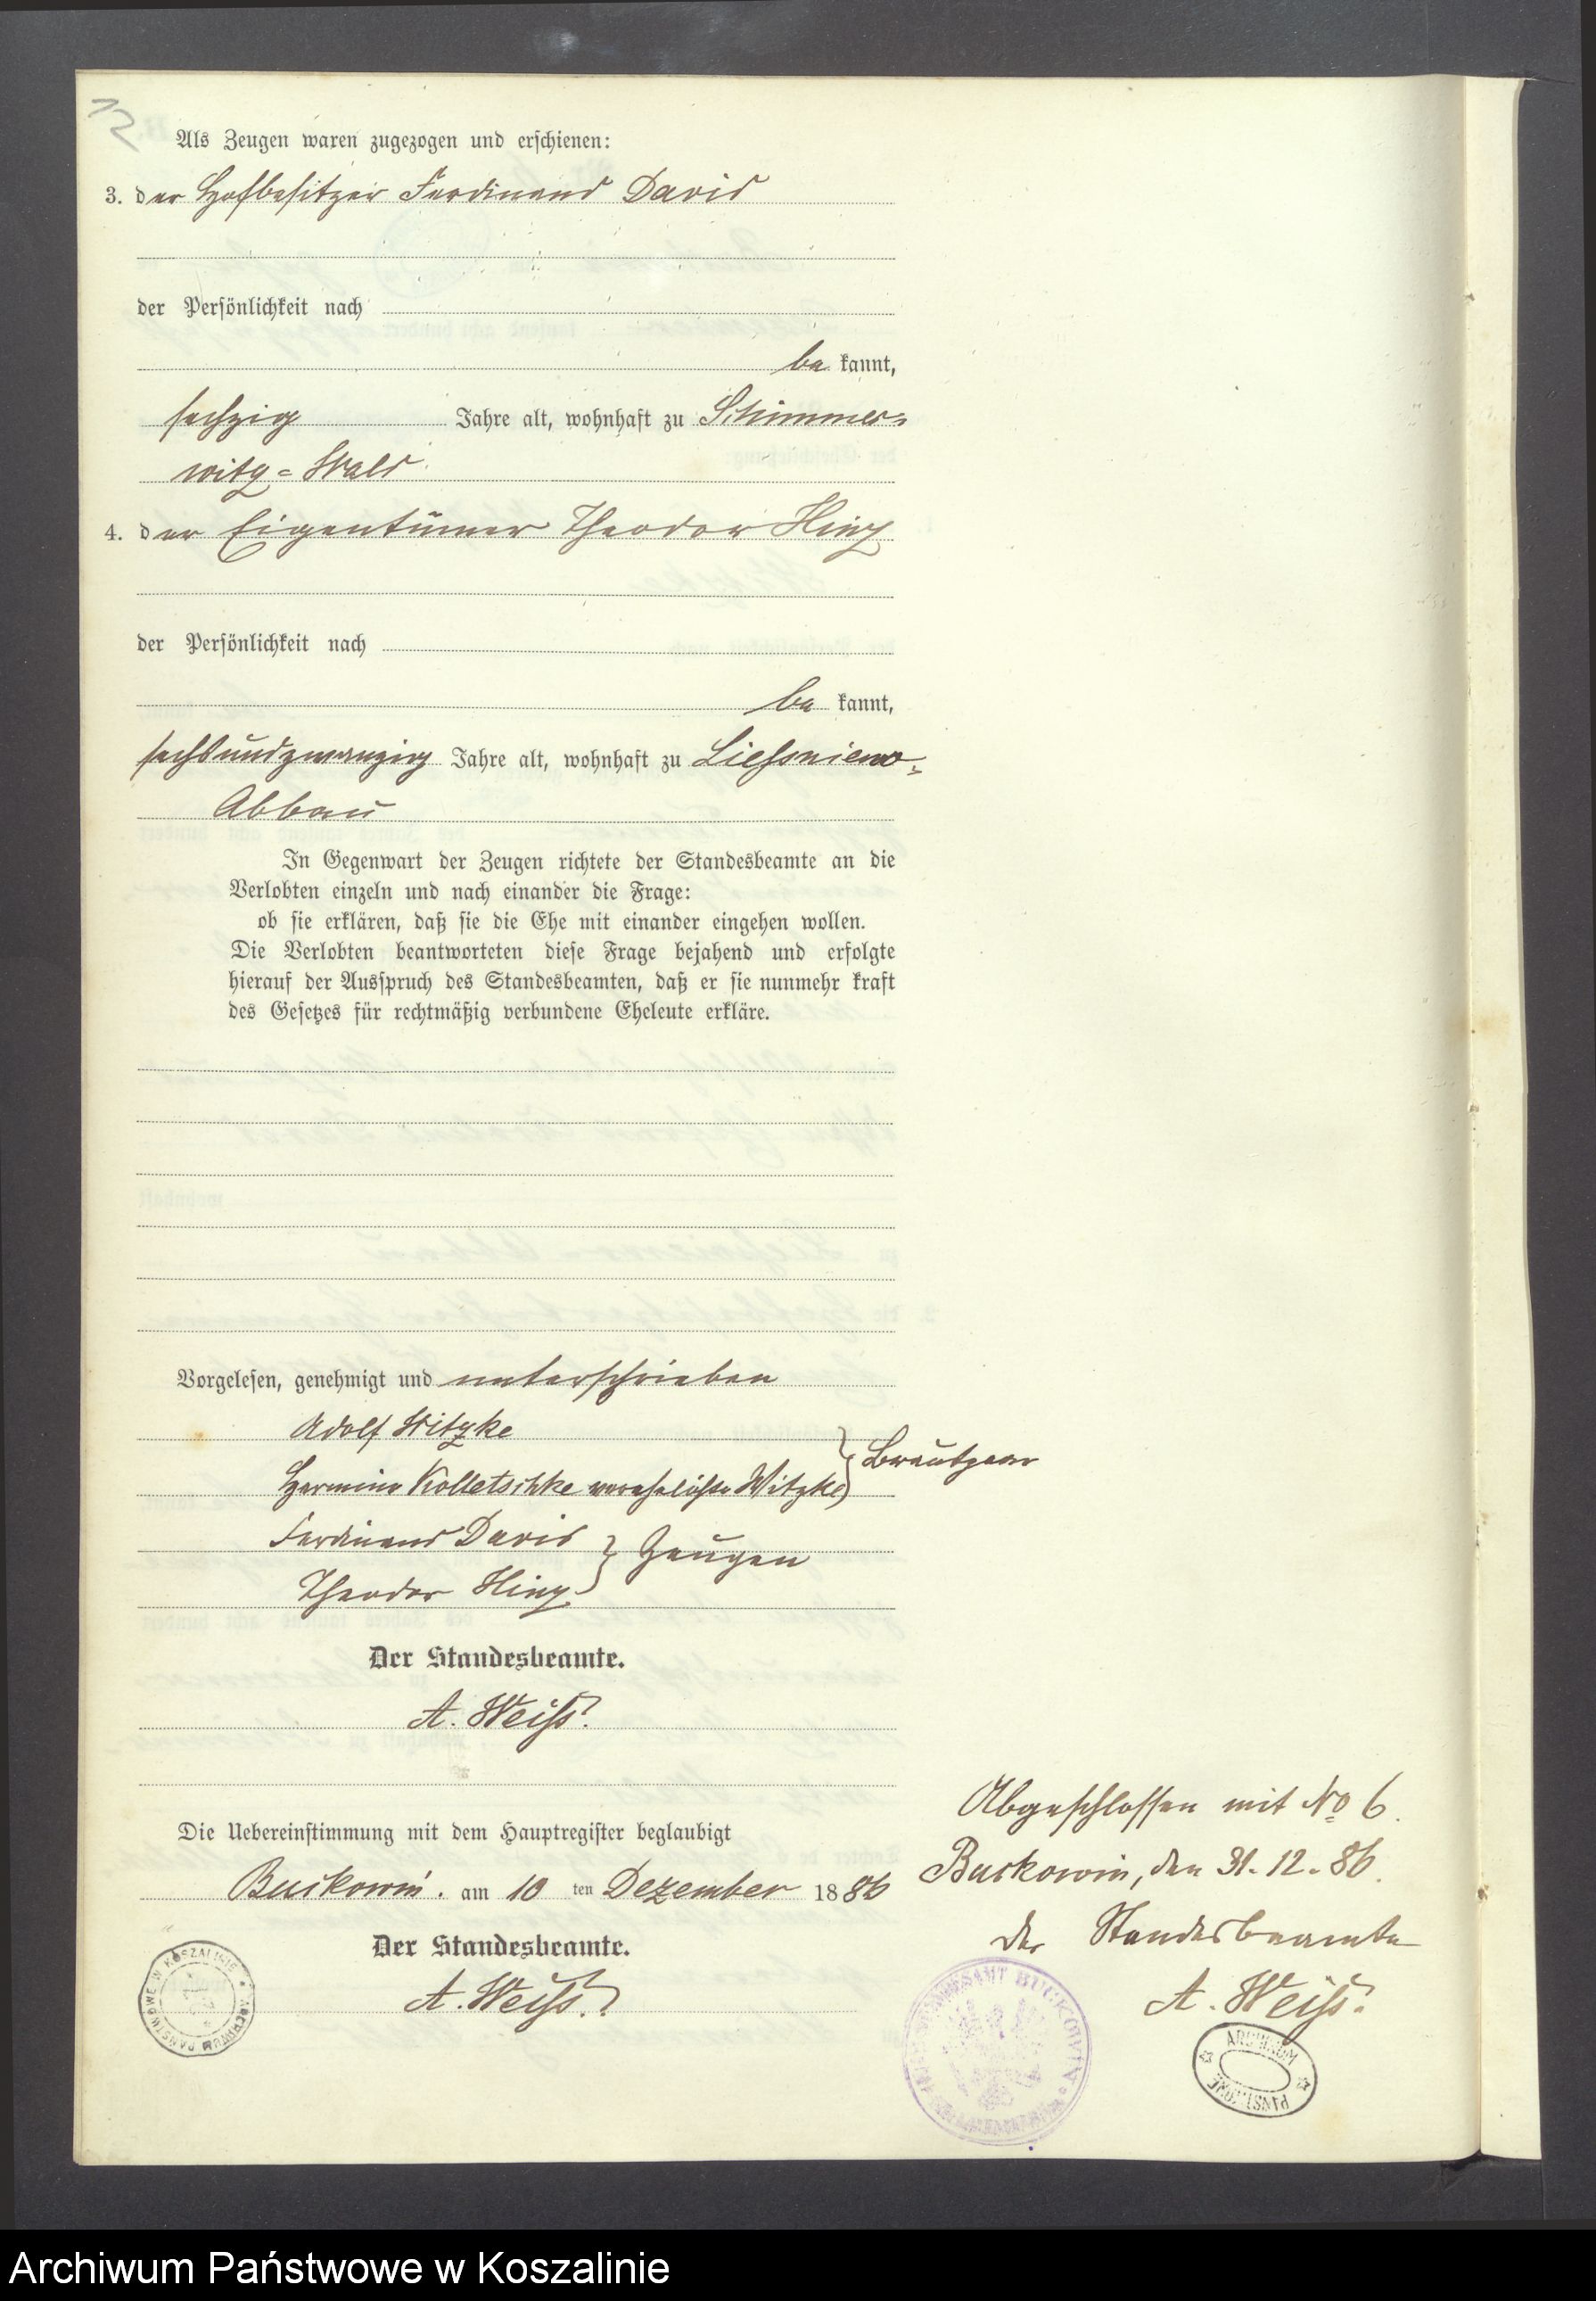 12
Als Zeugen waren zugezogen und erschienen:
3. der Hofbesitzer Ferdinand David
der Persönlichkeit nach
be kannt,
sechzig Jahre alt, wohnhaft zu Schimmer=
witz=Wald.
4. der Eigentümer Theodor Hinz
der Persönlichkeit nach
be kannt,
sechsundzwanzig Jahre alt, wohnhaft zu Liessniewo=
Abbau
In Gegenwart der Zeugen richtete der Standesbeamte an die
Verlobten einzeln und nach einander die Frage:
ob sie erklären, daß sie die Ehe mit einander eingehen wollen.
Die Verlobten beantworteten diese Frage bejahend und erfolgte
hierauf der Ausspruch des Standesbeamten, daß er sie nunmehr kraft
des Gesetzes für rechtmäßig verbundene Eheleute erkläre.
Vorgelesen, genehmigt und unterschrieben
Adolf Witzke
Hermine Kolletschke verehelichte Witzke } Brautpaar
Ferdinand David
Theodor Hinz } Zeugen
Der Standesbeamte.
A. Weiss.
Die Uebereinstimmung mit dem Hauptregister beglaubigt
Buckowin. am 10 ten Dezember 1886
Der Standesbeamte.
A. Weiss.
Abgeschlossen mit No 6.
Buckowin, den 31. 12. 86.
Der Standesbeamte
A. Weiss.
ARCHIWUM PAŃSTWOWE W KOSZALINIE
STANDESAMT BUCKOWIN
ARCHIWUM PAŃSTWOWE
Archiwum Państwowe w Koszalinie